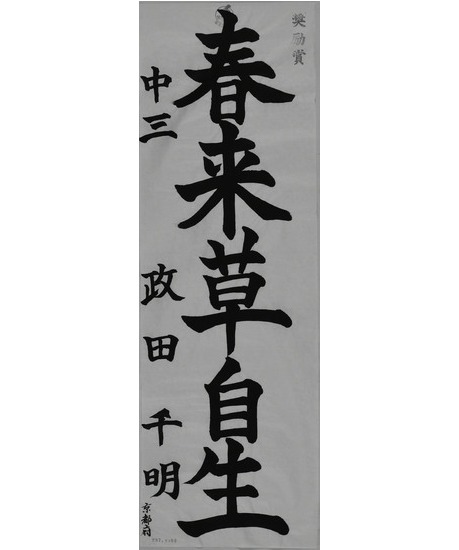 奨励賞
春来草自生
中三 政田 千明
京都府